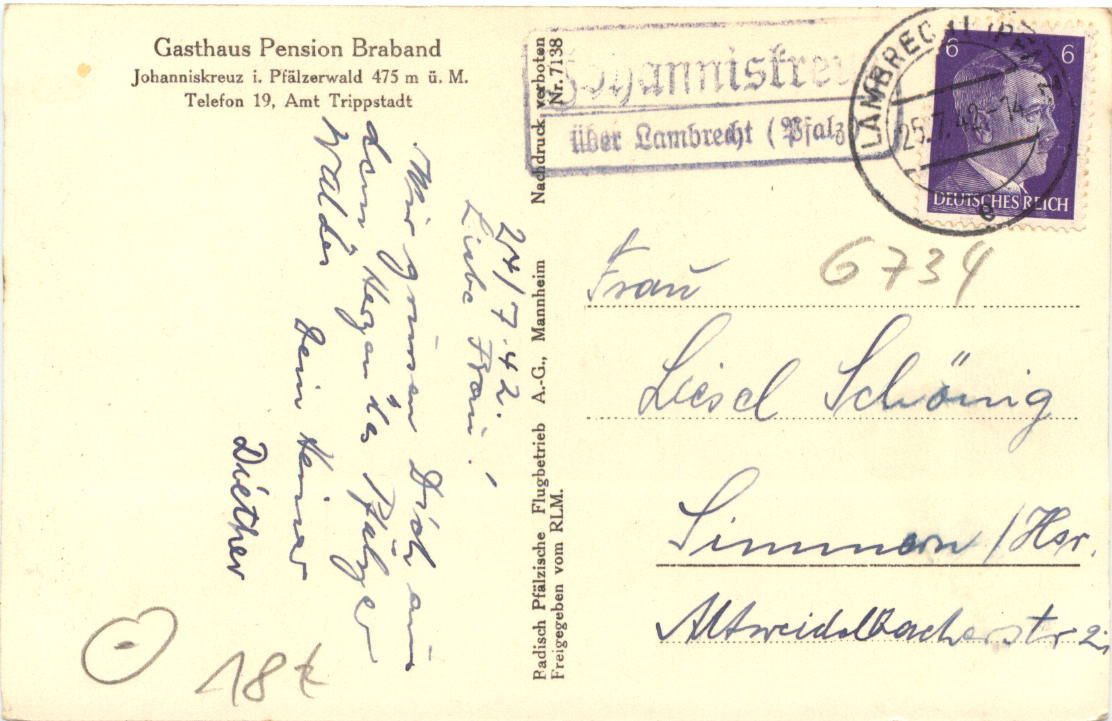 Gasthaus Pension Braband
Johanniskreuz i. Pfälzerwald 475 m ü. M.
Telefon 19, Amt Trippstadt
24/7.42.
Liebe Frau!
Wir grüssen Dich aus
dem Herzen des Pfälzer
Waldes
Dein Heiner
Diether
18
Badisch Pfälzische Flugbetrieb A.-G., Mannheim Nachdruck verboten
Freigegeben vom RLM. Nr. 7138
Johanniskreuz
über Lambrecht (Pfalz)
LAMBRECHT (PFALZ)
25.7.42-14
e
6 6
DEUTSCHES REICH
6734
Frau
Liesel Schönig
Simmern/Hsr.
Altweidelbacherstr